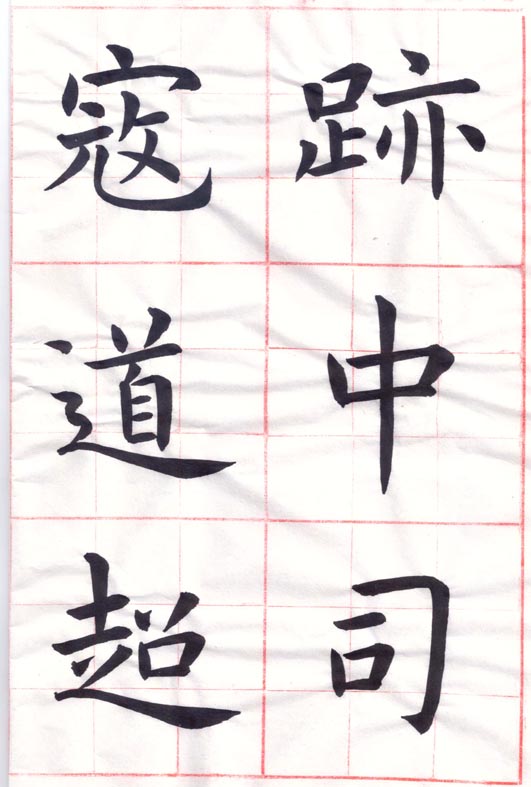 跡中司
寇道超